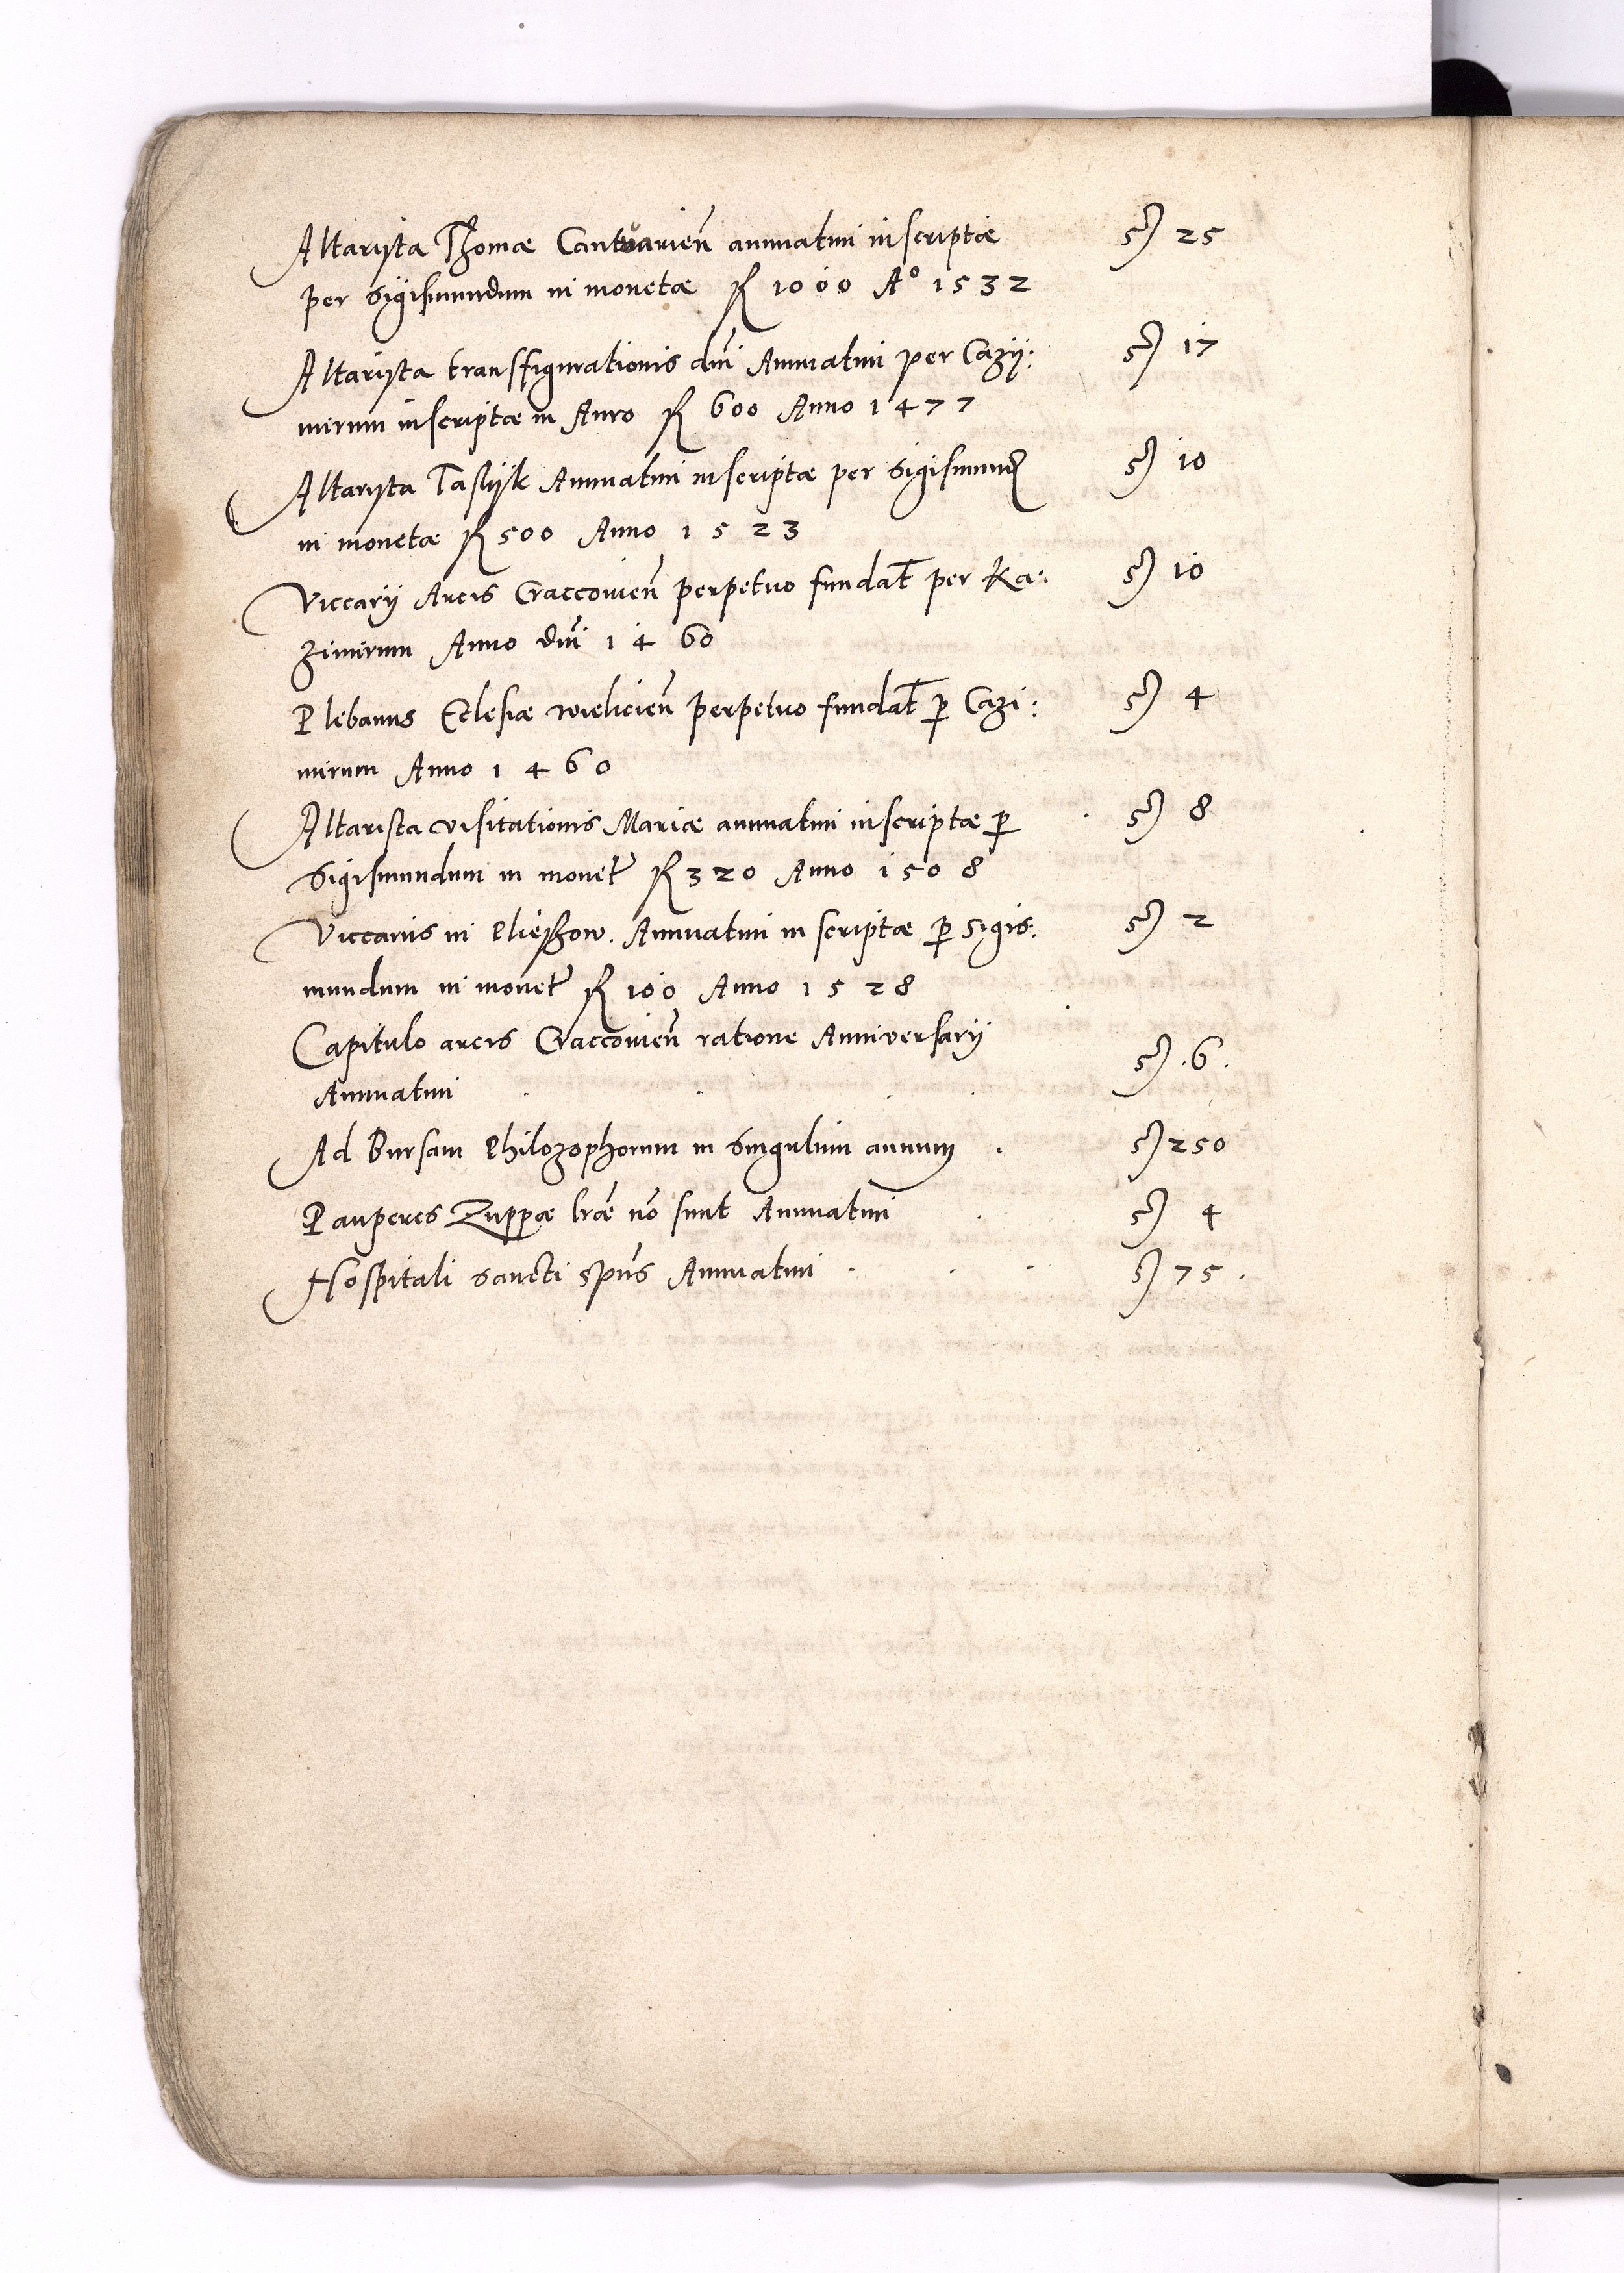 Altarysta Thomæ Cantuarien̄ annuatim inscriptæ 25
per Sigismundum in monetæ 1000 A° 1532
Altarysta transfigurationis dn̄i Annuatim per Cazij: 17
mirum inscriptæ in Auro 600 Anno 1477
Altarysta Taslyk Annuatim inscriptæ per Sigismund 10
in monetæ 500 Anno 1523
Viccarij Arcis Craccovien̄ perpetuo fundat̄ per Ka: 10
zimirum Anno dn̄i 1460
Plebanus Ecclesiæ wielicien̄ perpetuo fundat̄ ꝑ Cazi: 4
mirum Anno 1460
Altarista visitationis Mariæ annuatim inscriptæ ꝑ 8
Sigismundum in monet̄ 320 Anno 1508
Viccariis in Annuatim in scriptæ ꝑ Sigis: 2
mundum in monet̄ 100 Anno 1528
Capitulo arcis Craccovien̄ ratione Anniversarij
Annuatim . . . . .6.
Ad Bursam Philozophorum in Singulum annum . 250
Pauperes Zuppæ lræ nō sunt Annuatim . 4
Hospitali Sancti Spūs Annuatim . . . 75.